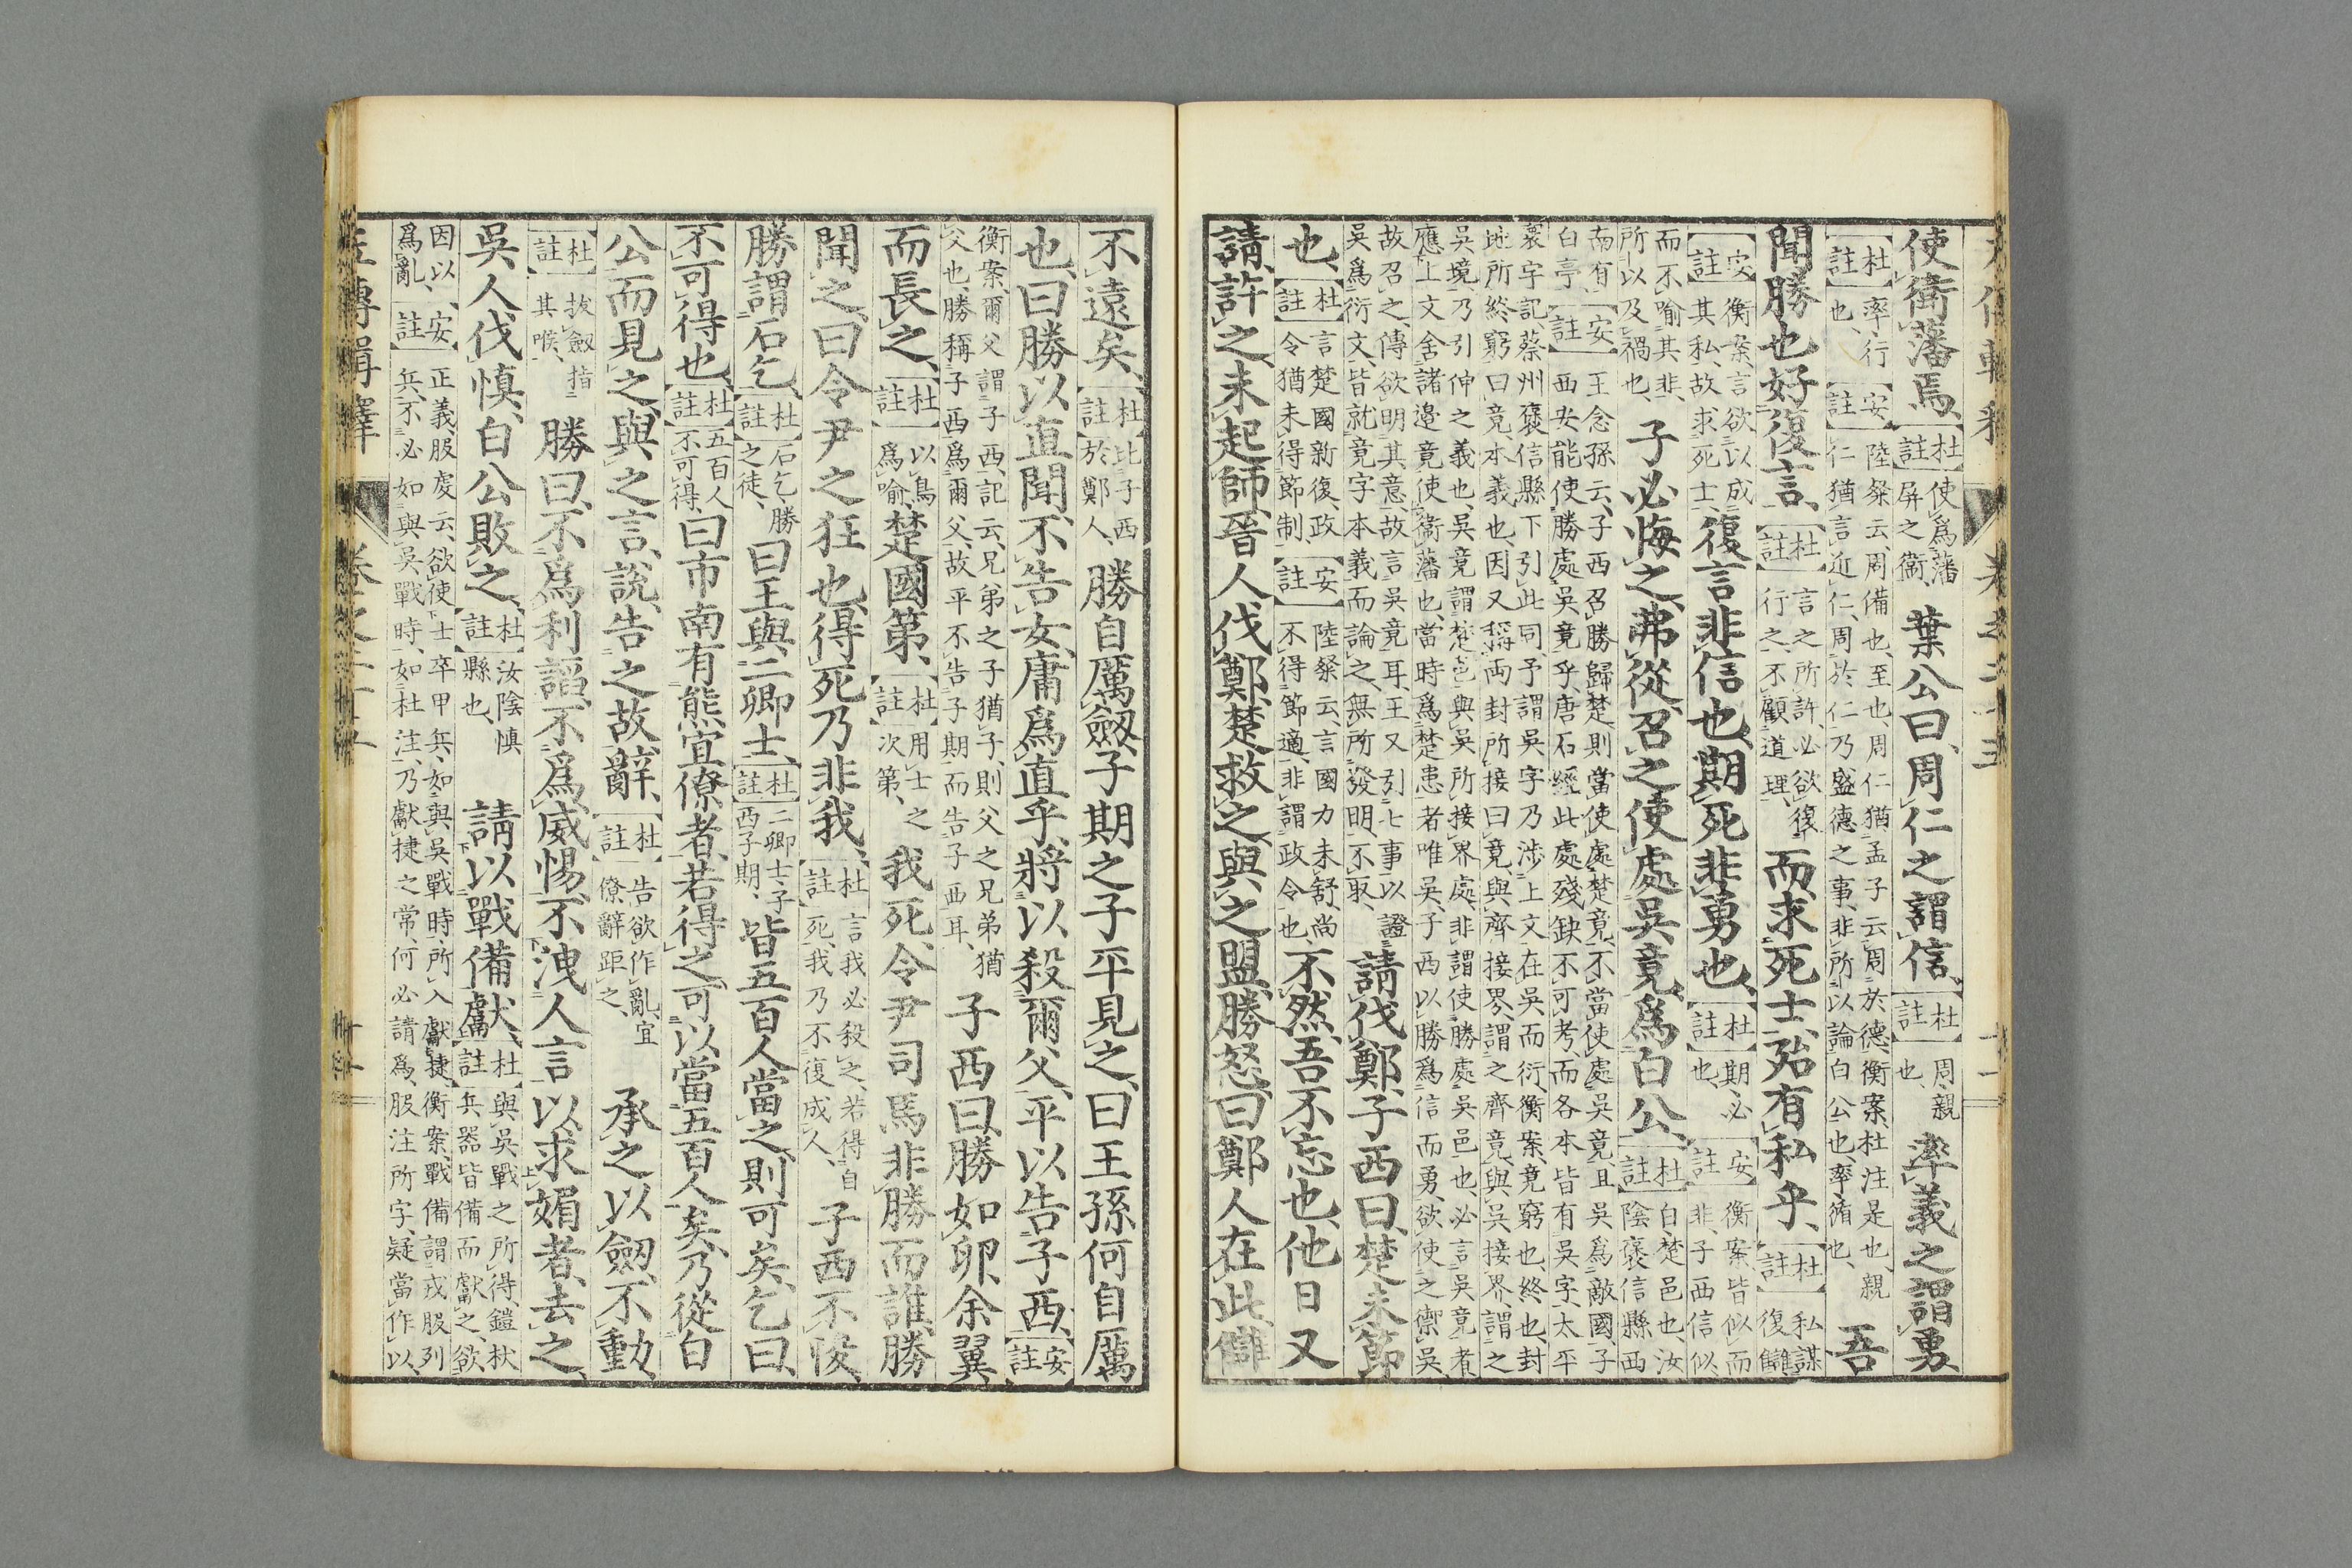 使衛藩焉、杜註使爲藩屏之衛、葉公曰、周仁之謂信、杜註周、親也、率義之謂勇、
杜註率、行也、安註陸粲云、周備也、至也、周仁猶孟子云周於德、衡案、杜注是也、親仁猶言近仁、周於仁乃盛德之事、非所以論白公也、率、循也、吾
聞勝也好復言、杜註言之所許、必欲復行之、不顧道理、而求死士、殆有私乎、杜註私謀復讎
安註衡案、言欲以成其私、故求死士、復言非信也、期死非勇也、杜註期、必也、安註衡案、皆似而非、子西信似
而不喻其非、所以及禍也、子必悔之、弗從、召之使處吳竟、爲白公、杜註白、楚邑也、汝陰褒信縣西
南有白亭安註王念孫云、子西召勝歸楚、則當使處楚竟、不當使處吳竟、且吳爲敵國、子西安能使勝處吳竟乎、唐石經此處殘缺、不可考、而各本皆有吳字、太平
寰宇記、蔡州褒信縣下引此同、予謂吳字乃涉上文在吳而衍、衡案、竟窮也、終也、封
地所終窮曰竟、本義也、因又稱兩封所接曰竟、與齊接界、謂之齊竟、與吳接界、謂之
吳境、乃引伸之義也、吳竟謂楚邑與吳所接界處、非謂使勝處吳邑也、必言吳竟者
應上文舍諸邊竟使衛藩也、當時爲楚患者唯吳、子西以勝爲信而勇、欲使之禦吳
故召之、傳欲明其意、故言吳竟耳、王又引七事以證吳爲衍文、皆就竟字本義而論之、無所發明、不取、請伐鄭、子西曰、楚未節
也、杜註言楚國新復、政令猶未得節制安註陸粲云、言國力未舒、尚不得節適、非謂政令也、不然、吾不忘也、他日又
請、許之、未起師、晉人伐鄭、楚救之、與之盟、勝怒曰、鄭人在此、讎
不遠矣、杜註比子西於鄭人、勝自厲劒、子期之子平見之、曰王孫何自厲
也、曰勝以直聞、不告女、庸爲直乎、將以殺爾父、平以告子西、安註
衡案、爾父謂子西、記云、兄弟之子猶子、則父之兄弟猶父也、勝稱子西爲爾父、故平不告子期而告子西耳、子西曰、勝如卵、余翼
而長之、杜註以鳥爲喻、楚國第、杜註用士之次第、我死、令尹司馬非勝而誰、勝
聞之、曰令尹之狂也、得死乃非我、杜註言我必殺之、若得自死、我乃不復成人、子西不悛、
勝謂石乞、杜註石乞、勝之徒、曰王與二卿士、杜註二卿士、子西子期、皆五百人當之、則可矣、乞曰、
不可得也、杜註五百人不可得、曰市南有熊宜僚者、若得之、可以當五百人矣、乃從白
公而見之、與之言、說、告之故、辭、杜註告欲作亂、宜僚辭距之、承之以劒、不動、
杜註拔劒指其喉、勝曰、不爲利謟、不爲威惕、不洩人言以求媚者、去之、
吳人伐愼、白公敗之、杜註汝陰愼縣也、請以戰備獻、杜註與吳戰之所得鎧杖兵器、皆備而獻之、欲
因以爲亂、安註正義、服虔云、欲使士卒甲兵、如與吳戰時、所入獻捷、衡案、戰備謂戎服列兵、不必如與吳戰時、如杜注、乃獻捷之常、何必請爲、服注所字、疑當作以、